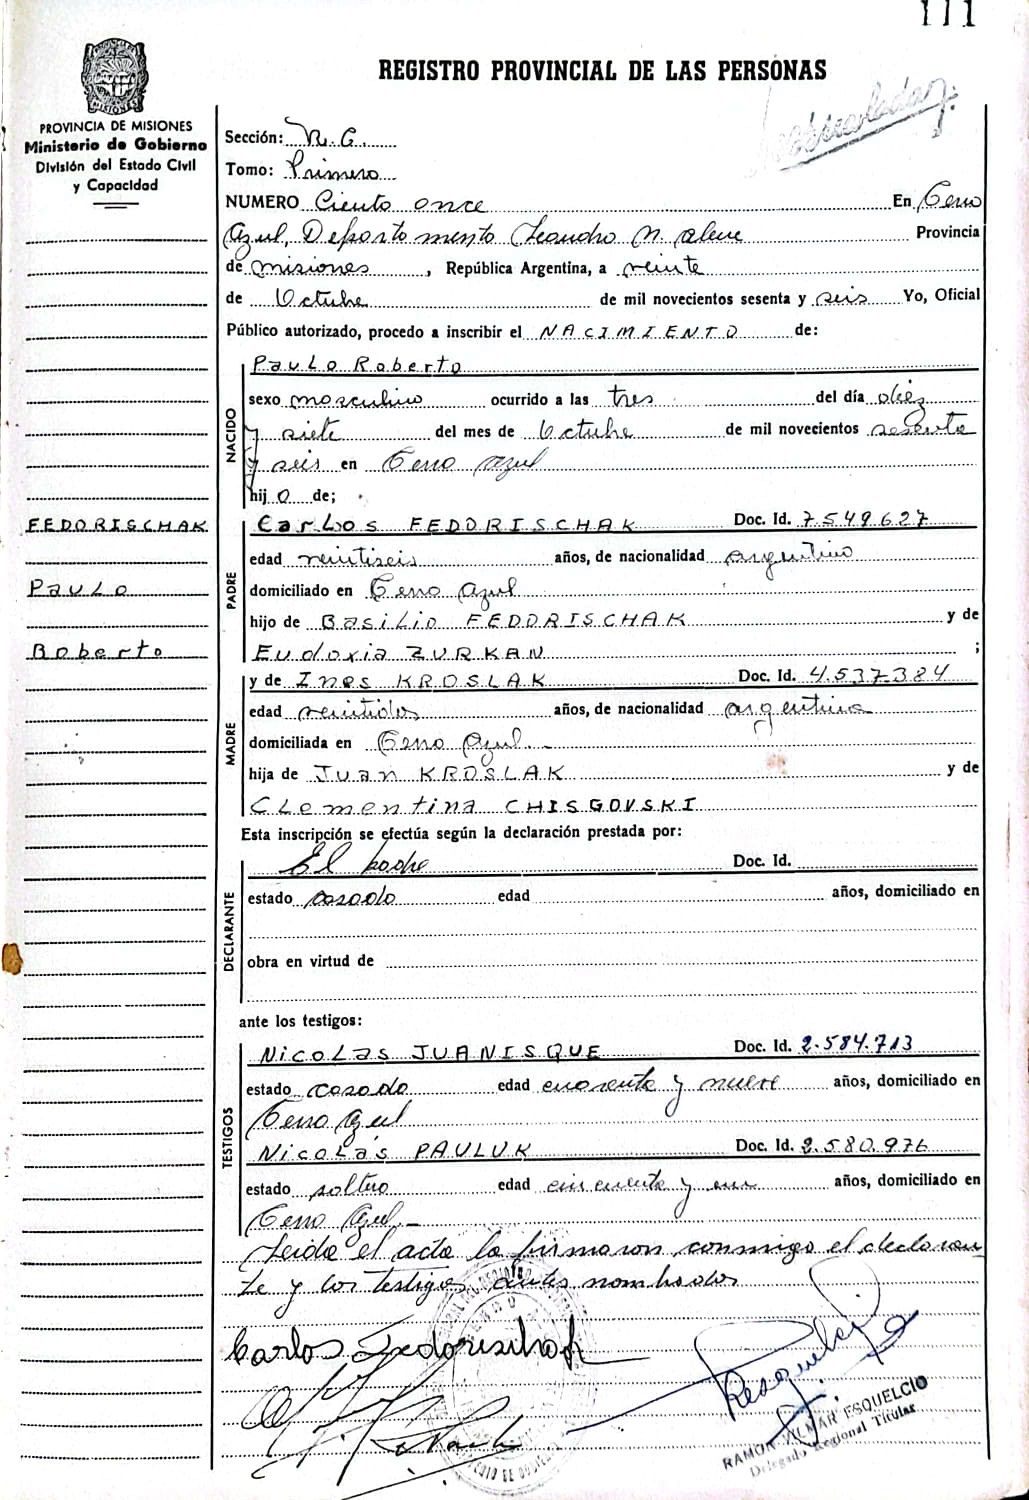 111
REGISTRO PROVINCIAL DE LAS PERSONAS
PROVINCIA DE MISIONES
Ministerio de Gobierno
División del Estado Civil
y Capacidad
Sección: N. C.
Tomo: Primero
NUMERO Ciento once En Cerro
Azul, Departamento Leandro N. Alem Provincia
de misiones, República Argentina, a veinte
de Octubre de mil novecientos sesenta y seis Yo, Oficial
Público autorizado, procedo a inscribir el NACIMIENTO de:
NACIDO
Paulo Roberto
sexo masculino ocurrido a las tres del día diez
y siete del mes de Octubre de mil novecientos sesenta
y seis en Cerro Azul
hijo de;
FEDORISCHAK
Paulo
Roberto
PADRE
Carlos FEDORISCHAK Doc. Id. 7.549.627
edad veintiseis años, de nacionalidad argentino
domiciliado en Cerro Azul
hijo de Basilio FEDORISCHAK y de
Eudoxia ZURKAN ;
MADRE
y de Ines KROSLAK Doc. Id. 4.537.384
edad veintidos años, de nacionalidad argentina
domiciliada en Cerro Azul.-
hija de Juan KROSLAK y de
Clementina CHISGOVSKI
Esta inscripción se efectúa según la declaración prestada por:
DECLARANTE
El padre Doc. Id.
estado casado edad años, domiciliado en
obra en virtud de
ante los testigos:
TESTIGOS
Nicolas JUANISQUE Doc. Id. 2.584.713
estado casado edad cuarenta y nueve años, domiciliado en
Cerro Azul
Nicolás PAULUK Doc. Id. 2.580.976
estado soltero edad cincuenta y un años, domiciliado en
Cerro Azul.-
Leida el acta la firmaron conmigo el declaran
te y los testigos antes nombrados
Carlos Fedorischak
RAMON VILMAR ESQUELCIO
Delegado Regional Titular